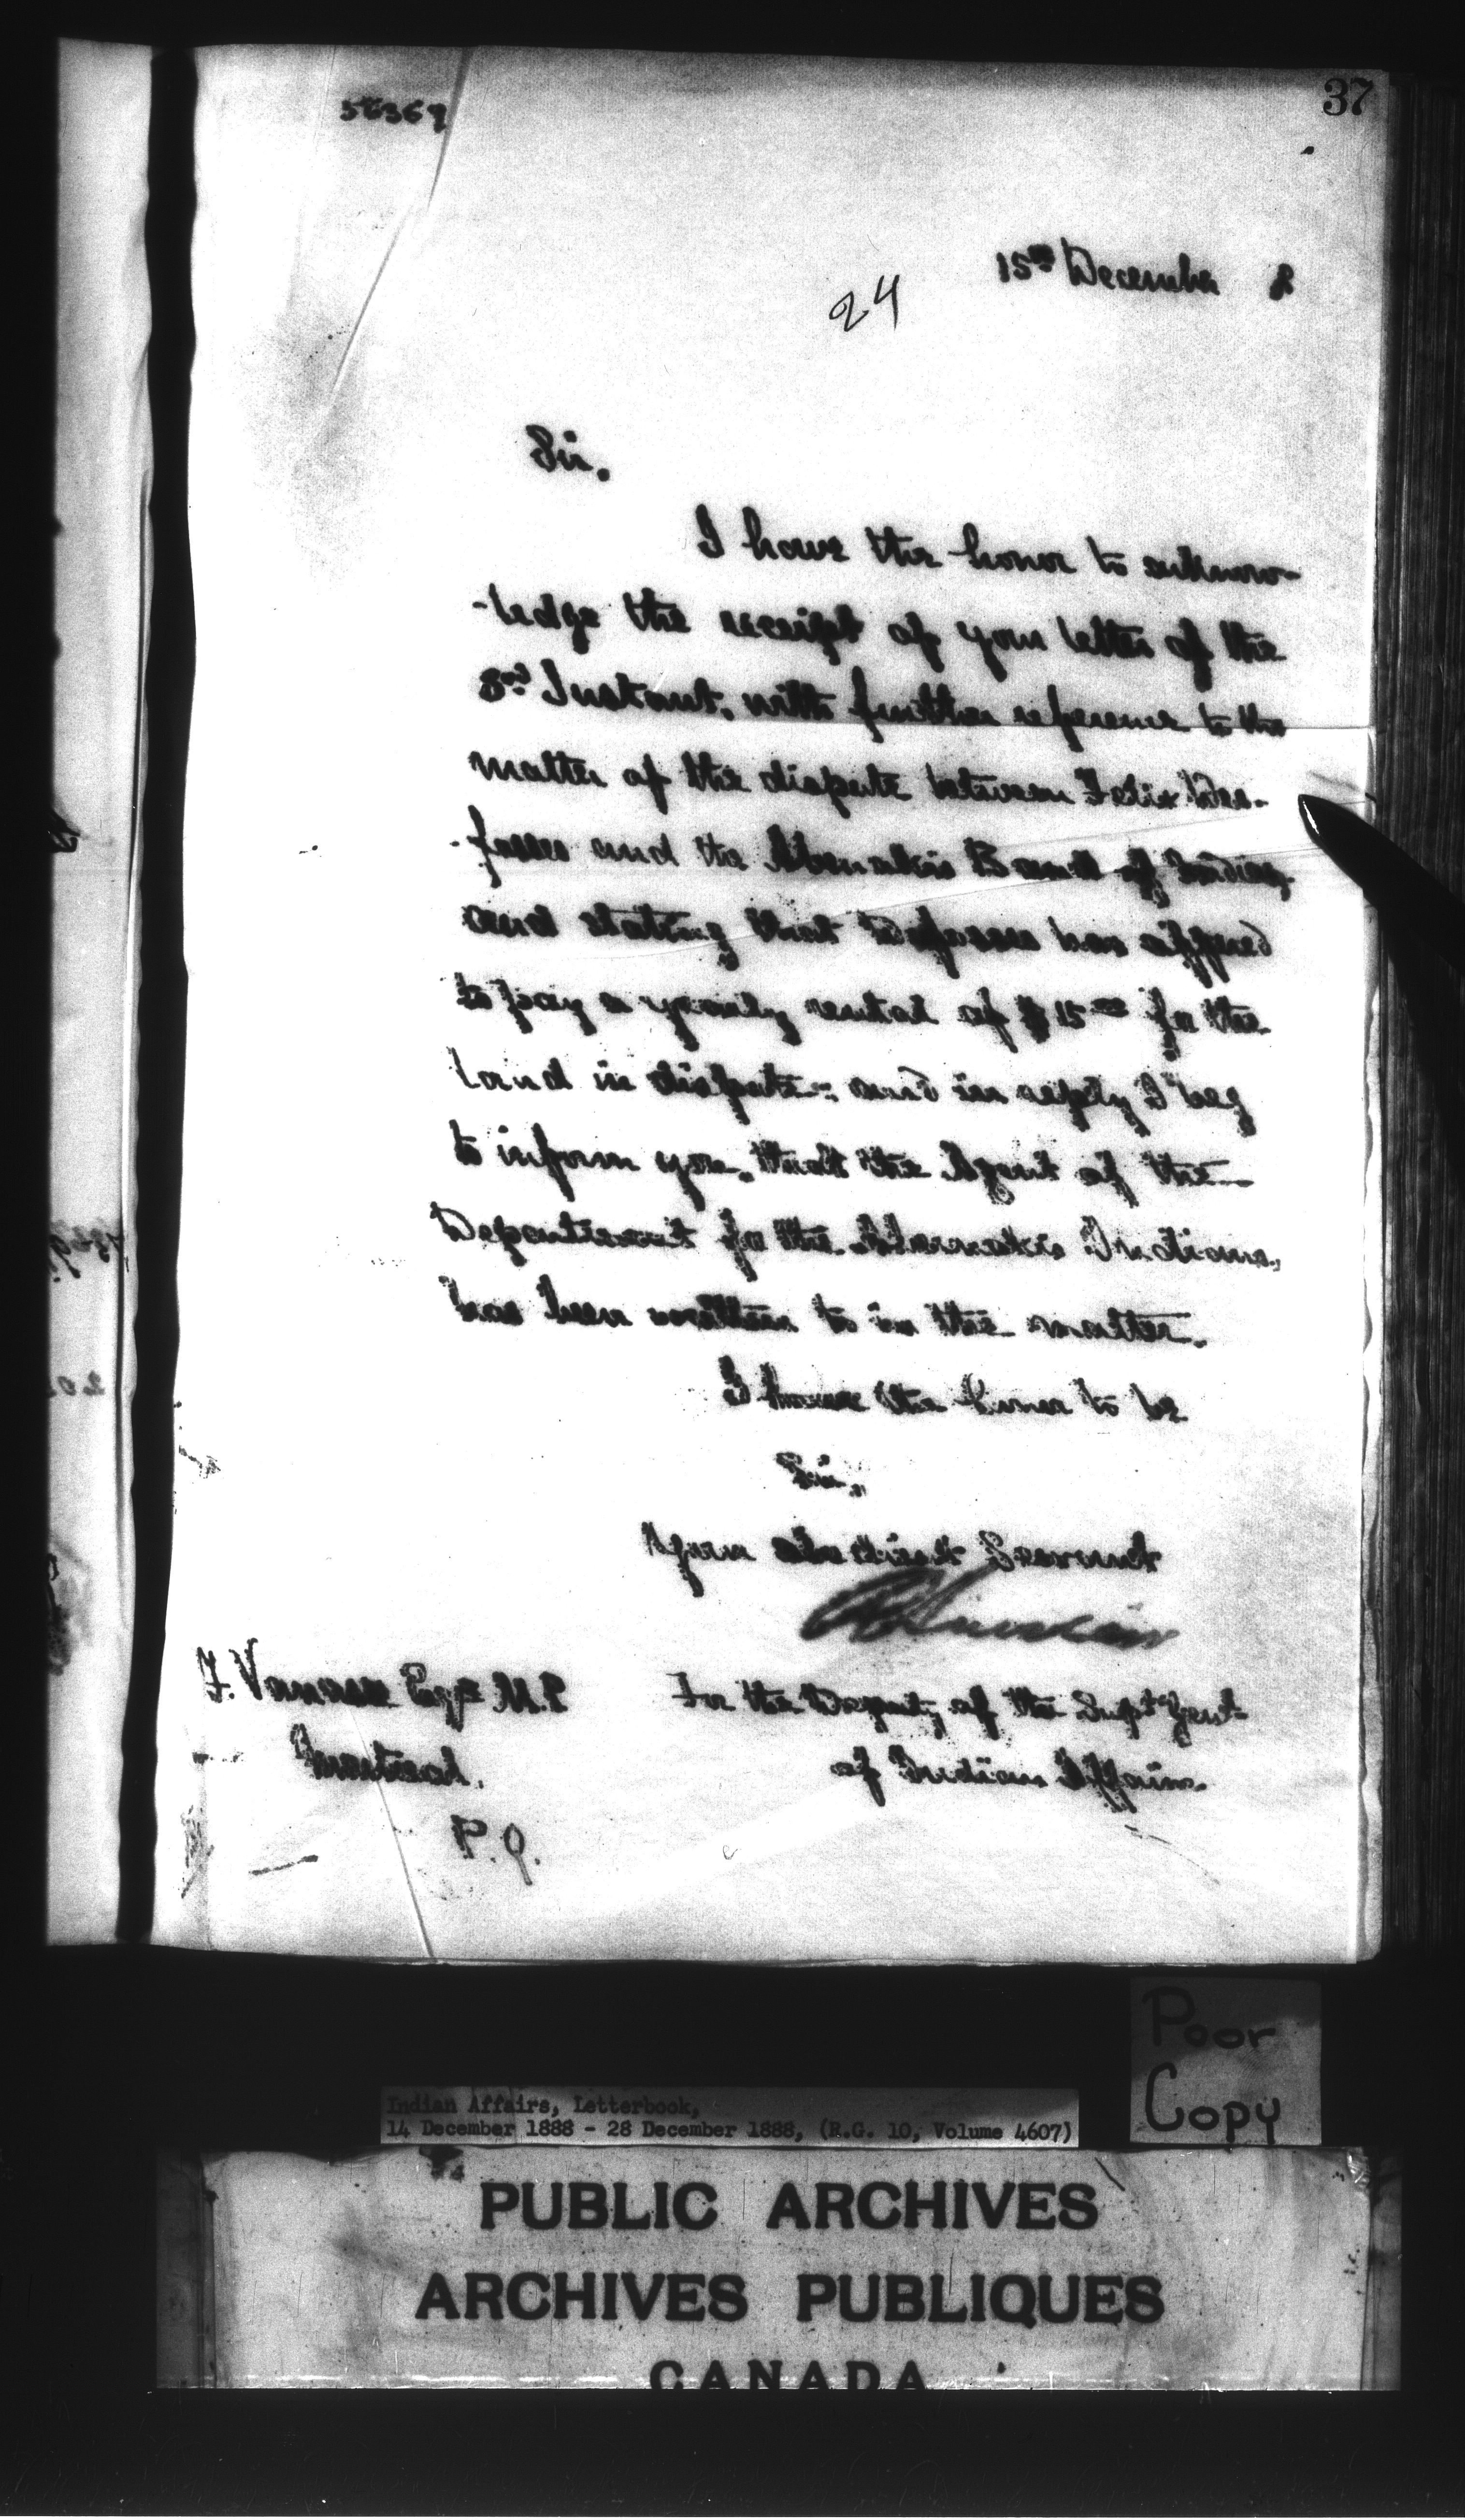 37
15th December 8
24
Sir,
I have the honor to acknow-
-ledge the receipt of your letter of the
3rd Instant, with further reference to the
matter of the dispute between Felix Des-
-fosses and the Abenakis Band of Indians,
and stating that Desfosses has offered
to pay a yearly rental of $15.00 for the
land in dispute: and in reply I beg
to inform you, that the Agent of the
Department for the Abenakis Indians,
has been written to in the matter.
I have the honor to be
Sir,
Your obedient Servant
F. Vanasse Esqr M.P.
For the Deputy of the Supt Genl
Montreal.
of Indian Affairs.
P.Q.
Poor
Copy
Indian Affairs, Letterbook,
14 December 1888 - 28 December 1888, (R.G. 10, Volume 4607)
PUBLIC ARCHIVES
ARCHIVES PUBLIQUES
CANADA